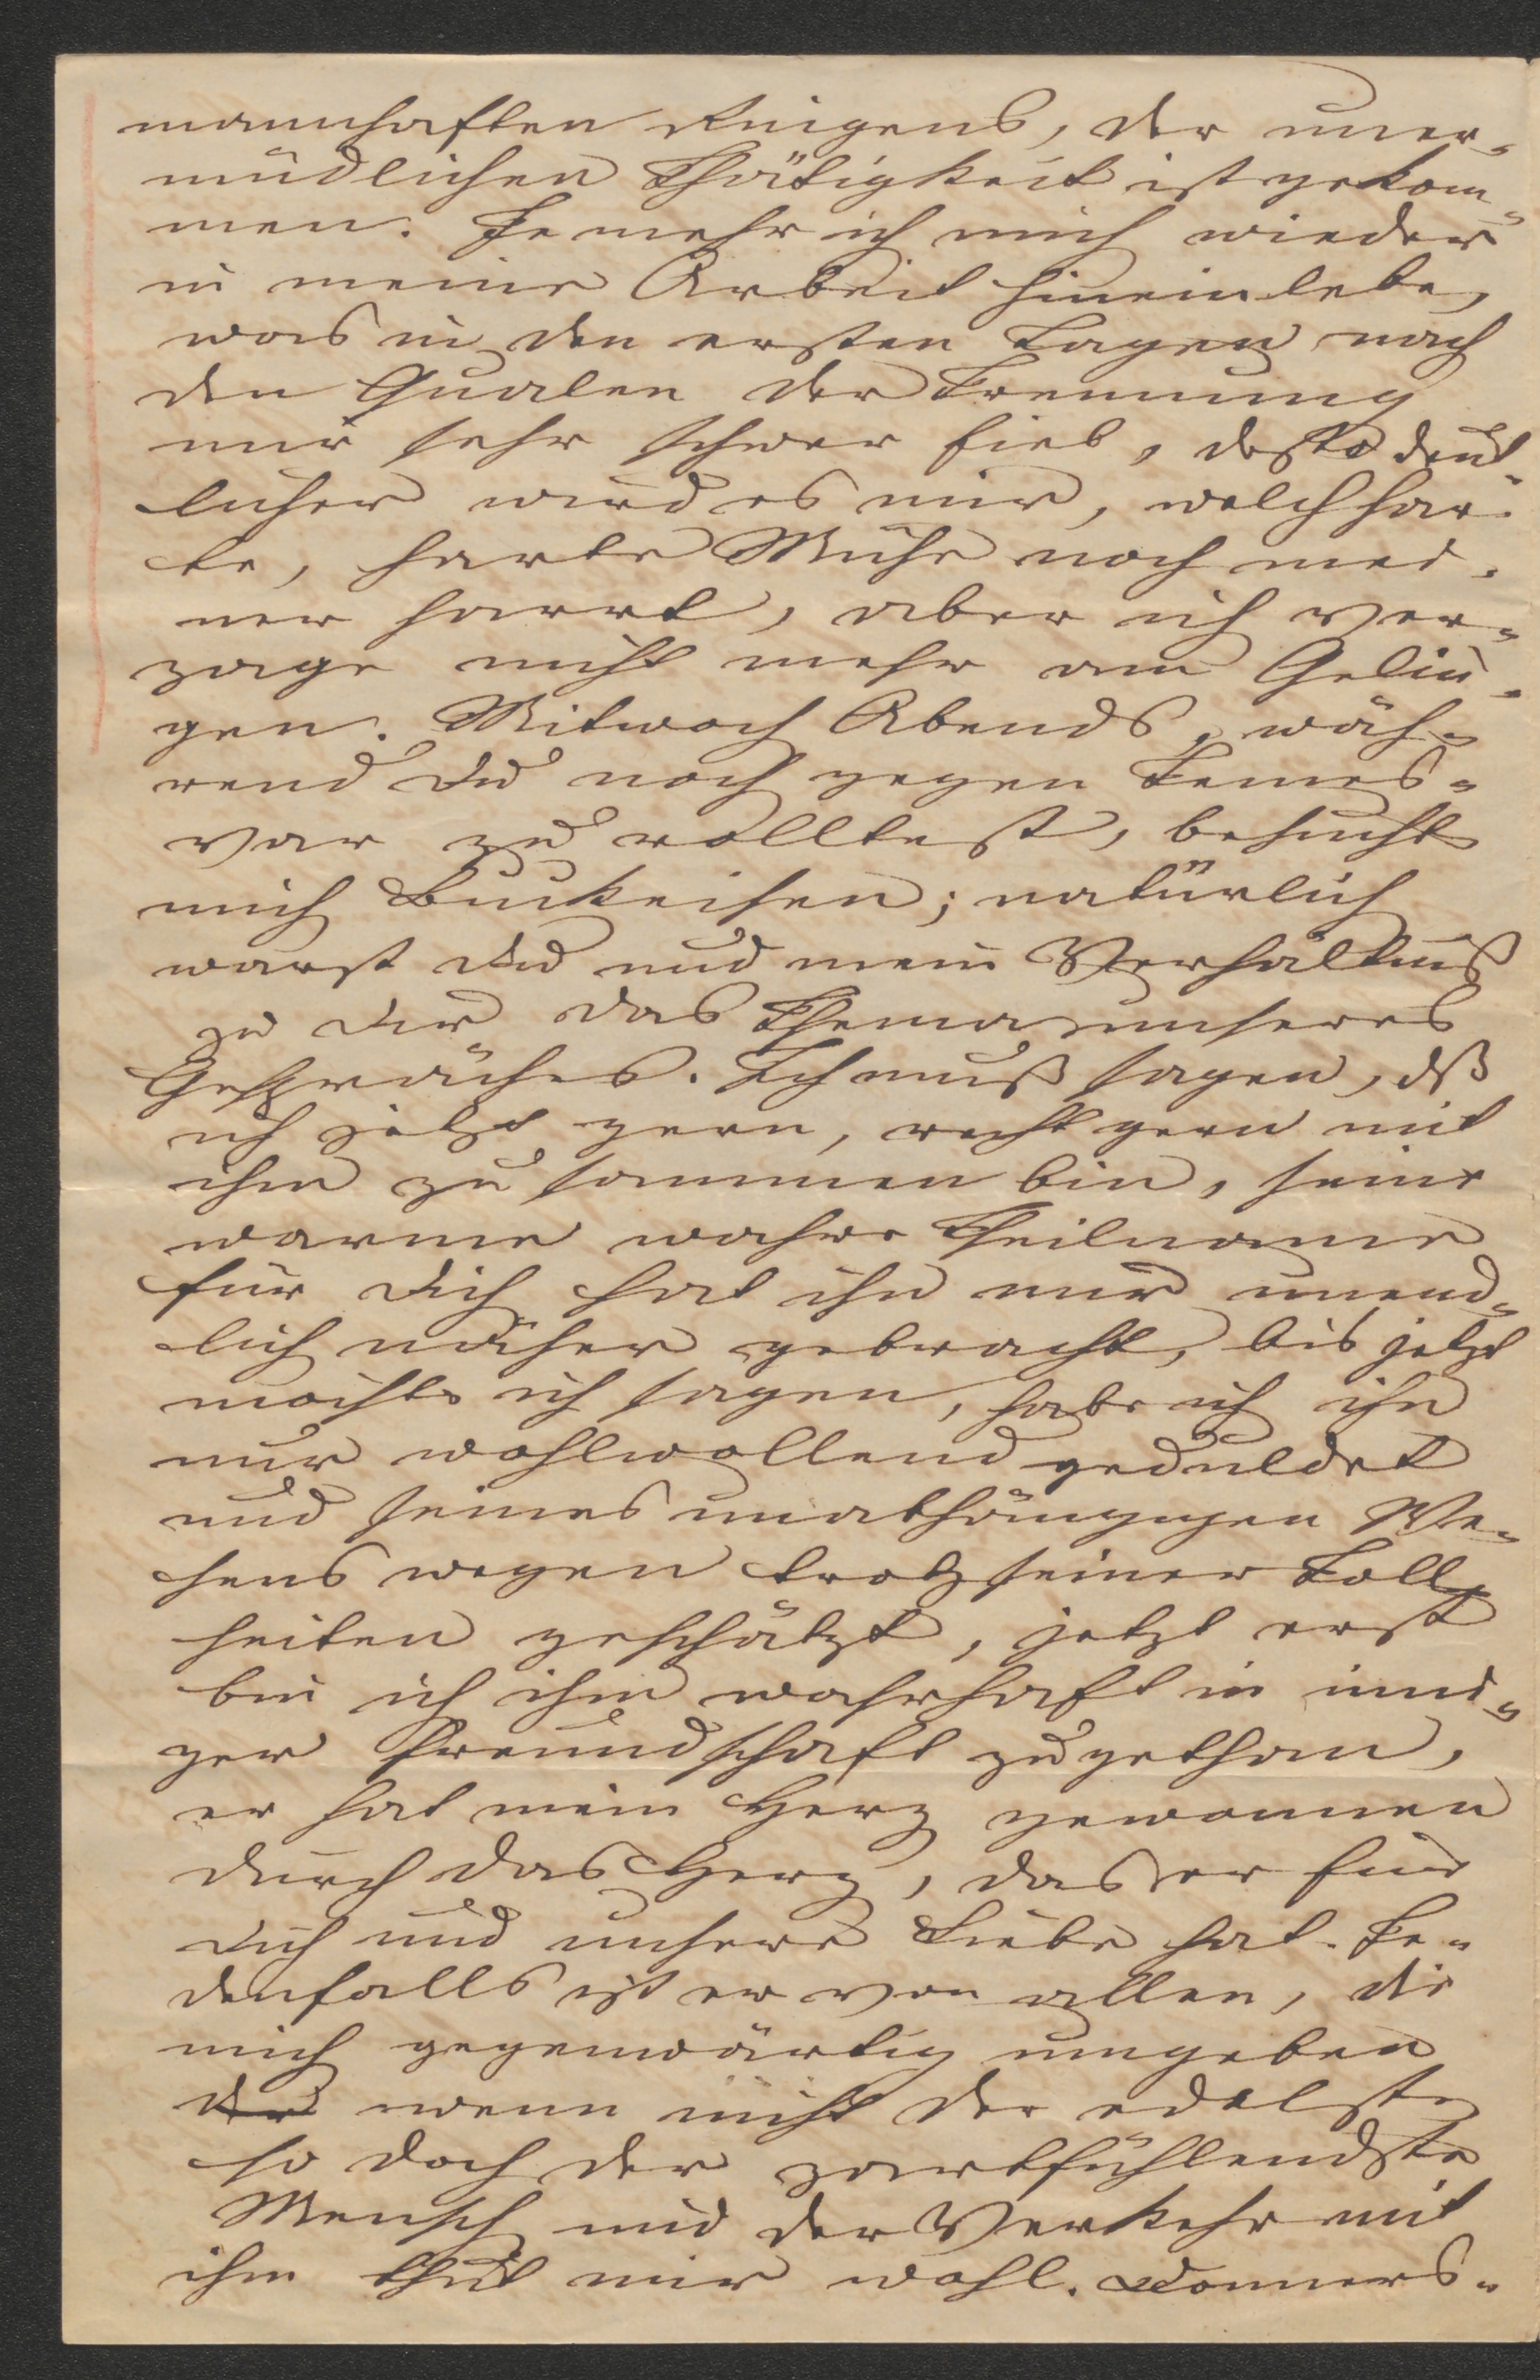 mannhaften Ringens, der uner-
müdlichen Thätigkeit ist gekom-
men. Je mehr ich mich wieder
in meine Arbeit hineinlebe,
was in den ersten Tagen nach
den Qualen der Trennung
mir sehr schwer fiel, desto deut-
licher wird es mir, welch har-
te, harte Mühe noch mei-
ner harrt, aber ich ver-
zage nicht mehr am Gelin-
gen. Mitwoch Abends, wäh-
rend Du noch gegen Temes-
var zu rolltest, besucht
mich Buckeisen; natürlich
warst Du und mein Verhältniß
zu Dir das Thema unseres
Gespräches. Ich muß sagen, dß
ich jetzt gern, recht gern mit
ihm zusammen bin, seine
warme wahre Theilname
für Dich hat ihn mir unend-
lich näher gebracht, bis jetzt
möchte ich sagen, habe ich ihn
nur wohlwollend geduldet
und seines unabhängigen We-
sens wegen trotz seiner Toll-
heiten geschätzt, jetzt erst
bin ich ihm wahrhaft in inni-
ger Freundschaft zugethan,
er hat mein Herz gewonnen
durch das Herz, das er für
Dich und unsere Liebe hat. Je-
denfalls ist er von allen, die
mich gegenwärtig umgeben
der wenn nicht der edelste
so doch der zartfühlendste
Mensch und der Verkehr mit
ihm thut mir wohl. Donners-